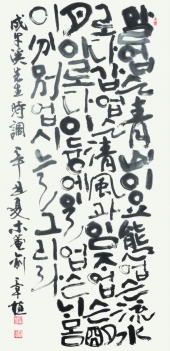 말업슨靑山이요態업슨流水
로다갑업슨淸風과임자업슨明
月이로다이듕에일업슨내몸
이分別업시늘그리라
成牛溪先生時調 辛丑夏